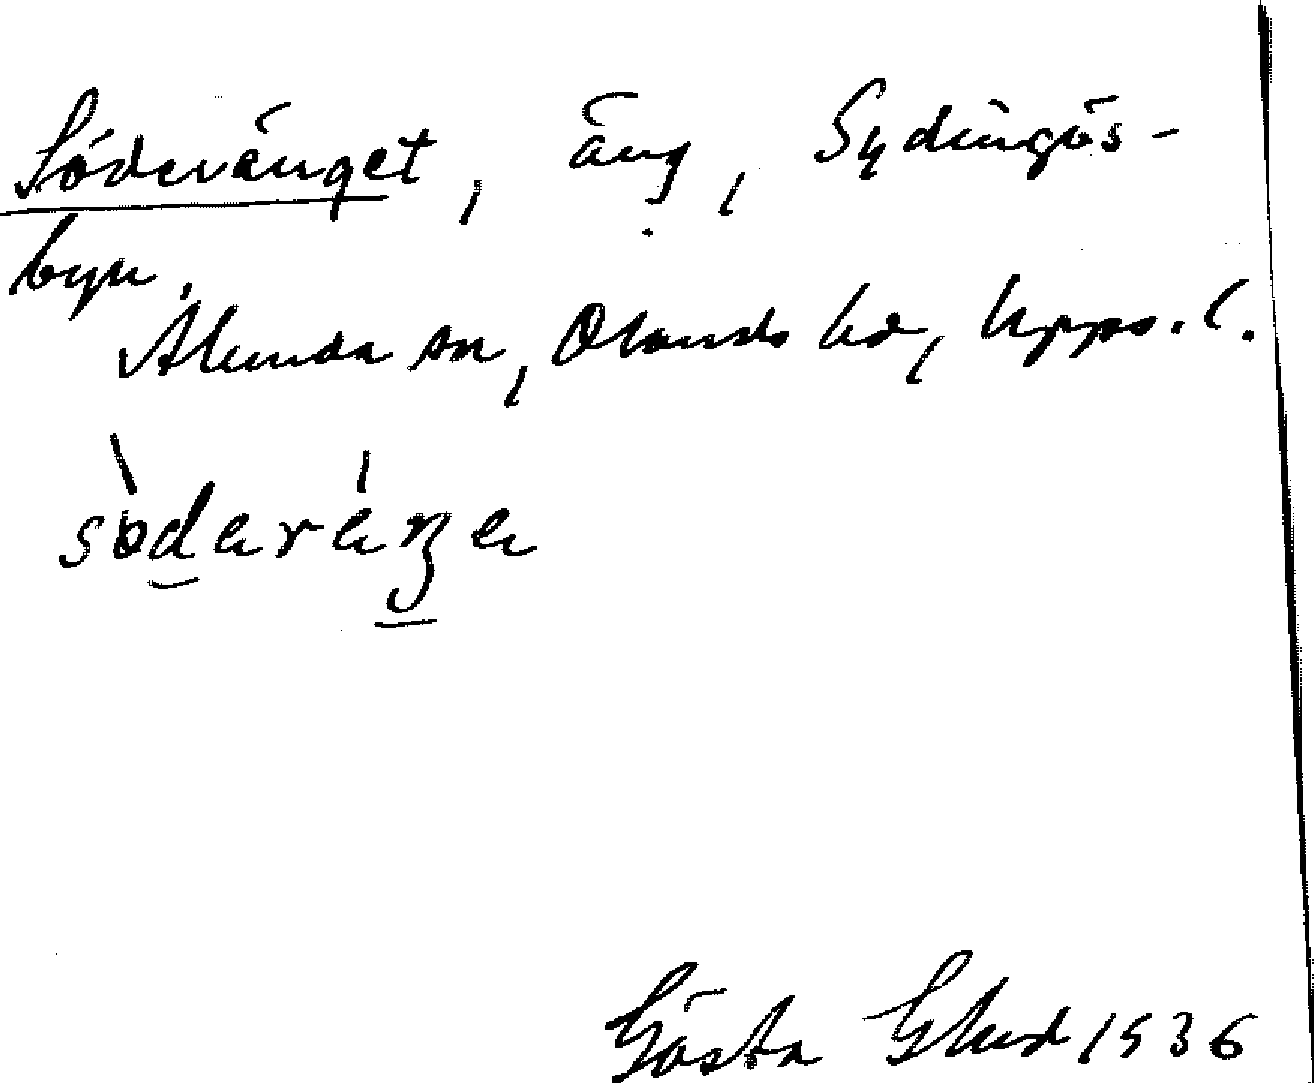 Söderänget, äng, Sydingös-
byn,
Alunda sn, Olands hd, Upps. l.
Gösta 1936